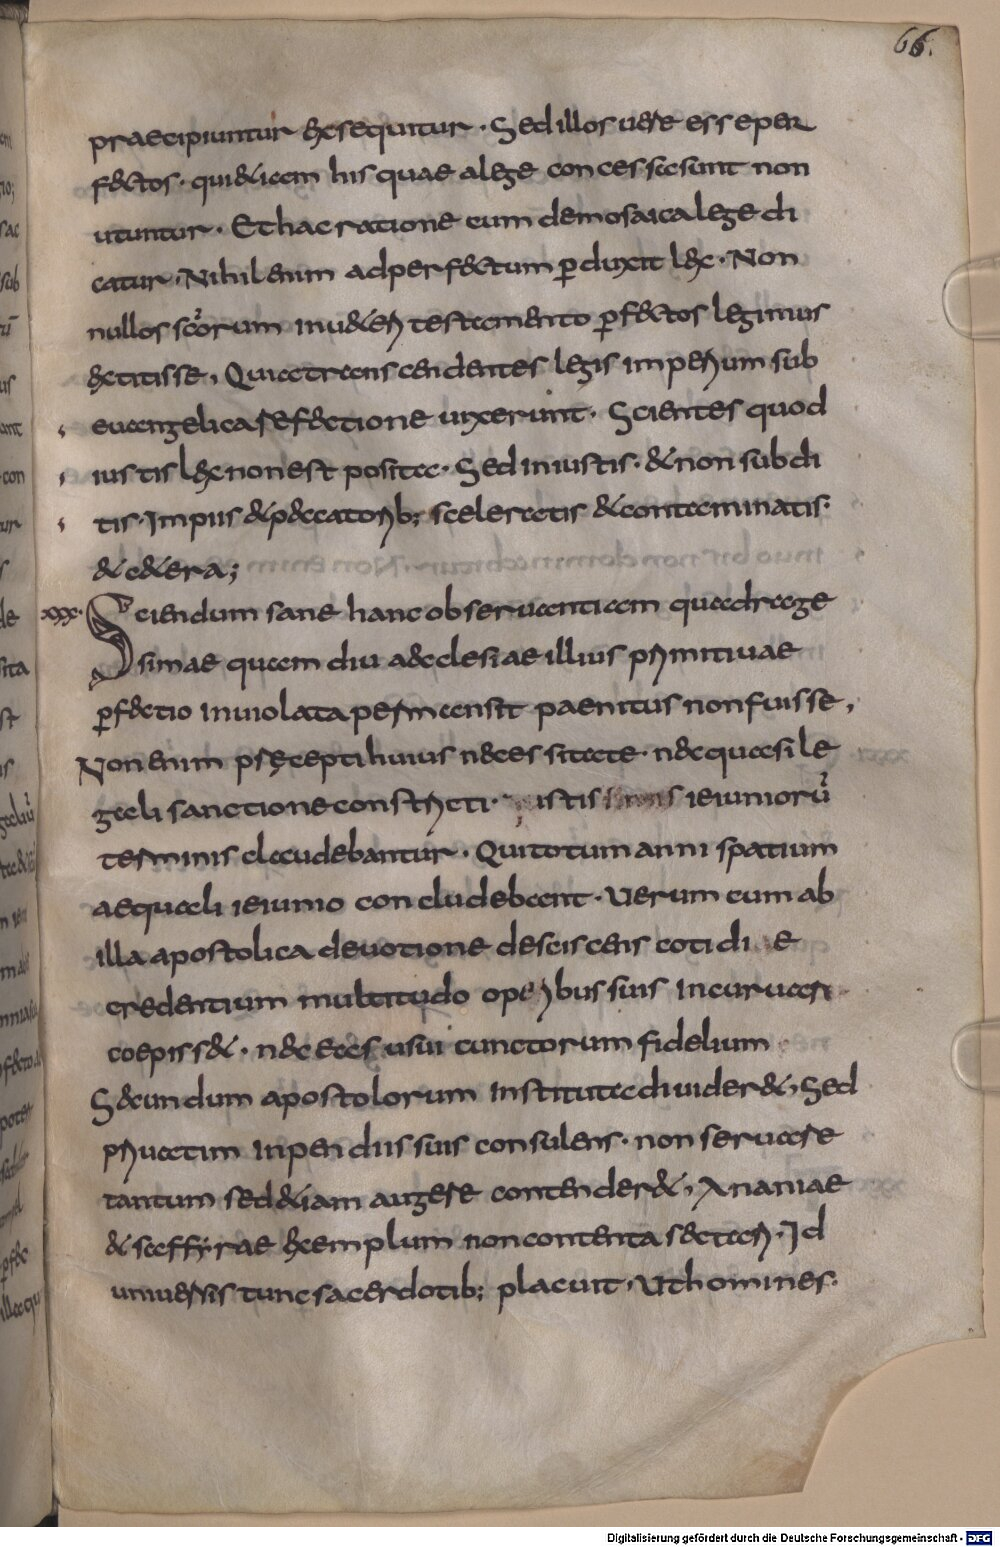 66.
praecipiuntur exsequitur · Sed illos uere esse per
fectos · qui etiam his quae a lege concessa sunt non
utuntur · Et hac ratione cum de mosaica lege di
catur · Nihil enim ad perfectum ꝑduxit lex · Non
nullos sc̃orum in ueteri testamento ꝑfectos legimus
extitisse, Qui transcendentes legis imperium sub
euangelica refectione uixerunt · Scientes quod
iustis lex non est posita · Sed iniustis · et non subdi
tis · Impiis et peccatorib; sceleratis et contaminatis ·
et cetera;
xxx · Sciendum sane hanc obseruantiam quadrage
simae quamdiu aecclesiae illius primitiuae
ꝑfectio inuiolata permansit paenitus non fuisse,
Non enim praecepti huius necessitate · nec quasi le
gali sanctione constricti · istis ieiuniorū
terminis claudebantur · Qui totum anni spatium
aequali ieiunio concludebant · Uerum cum ab
illa apostolica deuotione desciscens cotidie
credentium multitudo operibus suis incuruari
coepisset · nec eas usui cunctorum fidelium
Secundum apostolorum instituta diuideret, Sed
priuatim inpendiis suis consulens · non seruare
tantum sed etiam augere contenderet, Ananiae
et saffyrae exemplum non contenta sectari · Id
uniuersis tunc sacerdotib; placuit · Ut homines ·
Digitalisierung gefördert durch die Deutsche Forschungsgemeinschaft - DFG